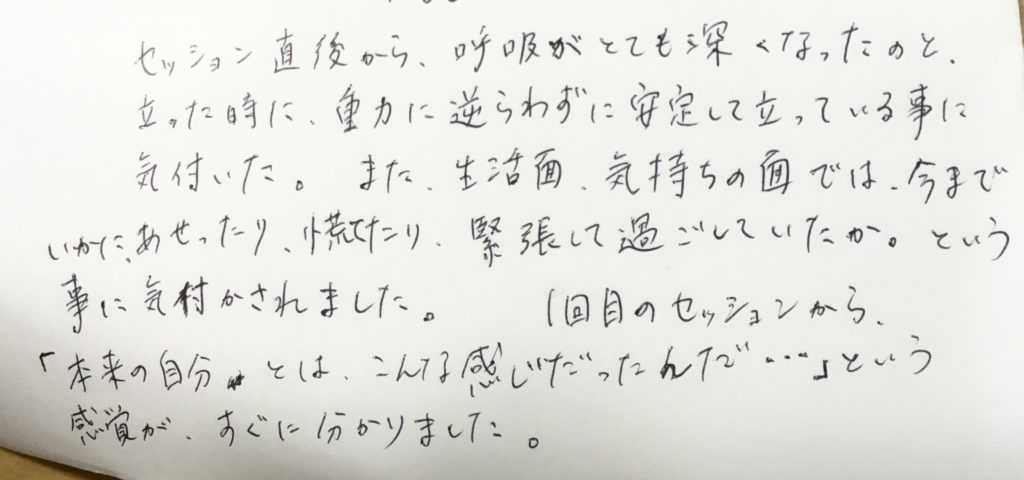 セッション直後から、呼吸がとても深くなったのと、
立った時に、重力に逆らわずに安定して立っている事に
気付いた。 また、生活面、気持ちの面では、今まで
いかに、あせったり、慌てたり、緊張して過ごしていたか。という
事に気付かされました。 1回目のセッションから、
「本来の自分〟とは、こんな感じだったんだ…」という
感覚が、すぐに分かりました。